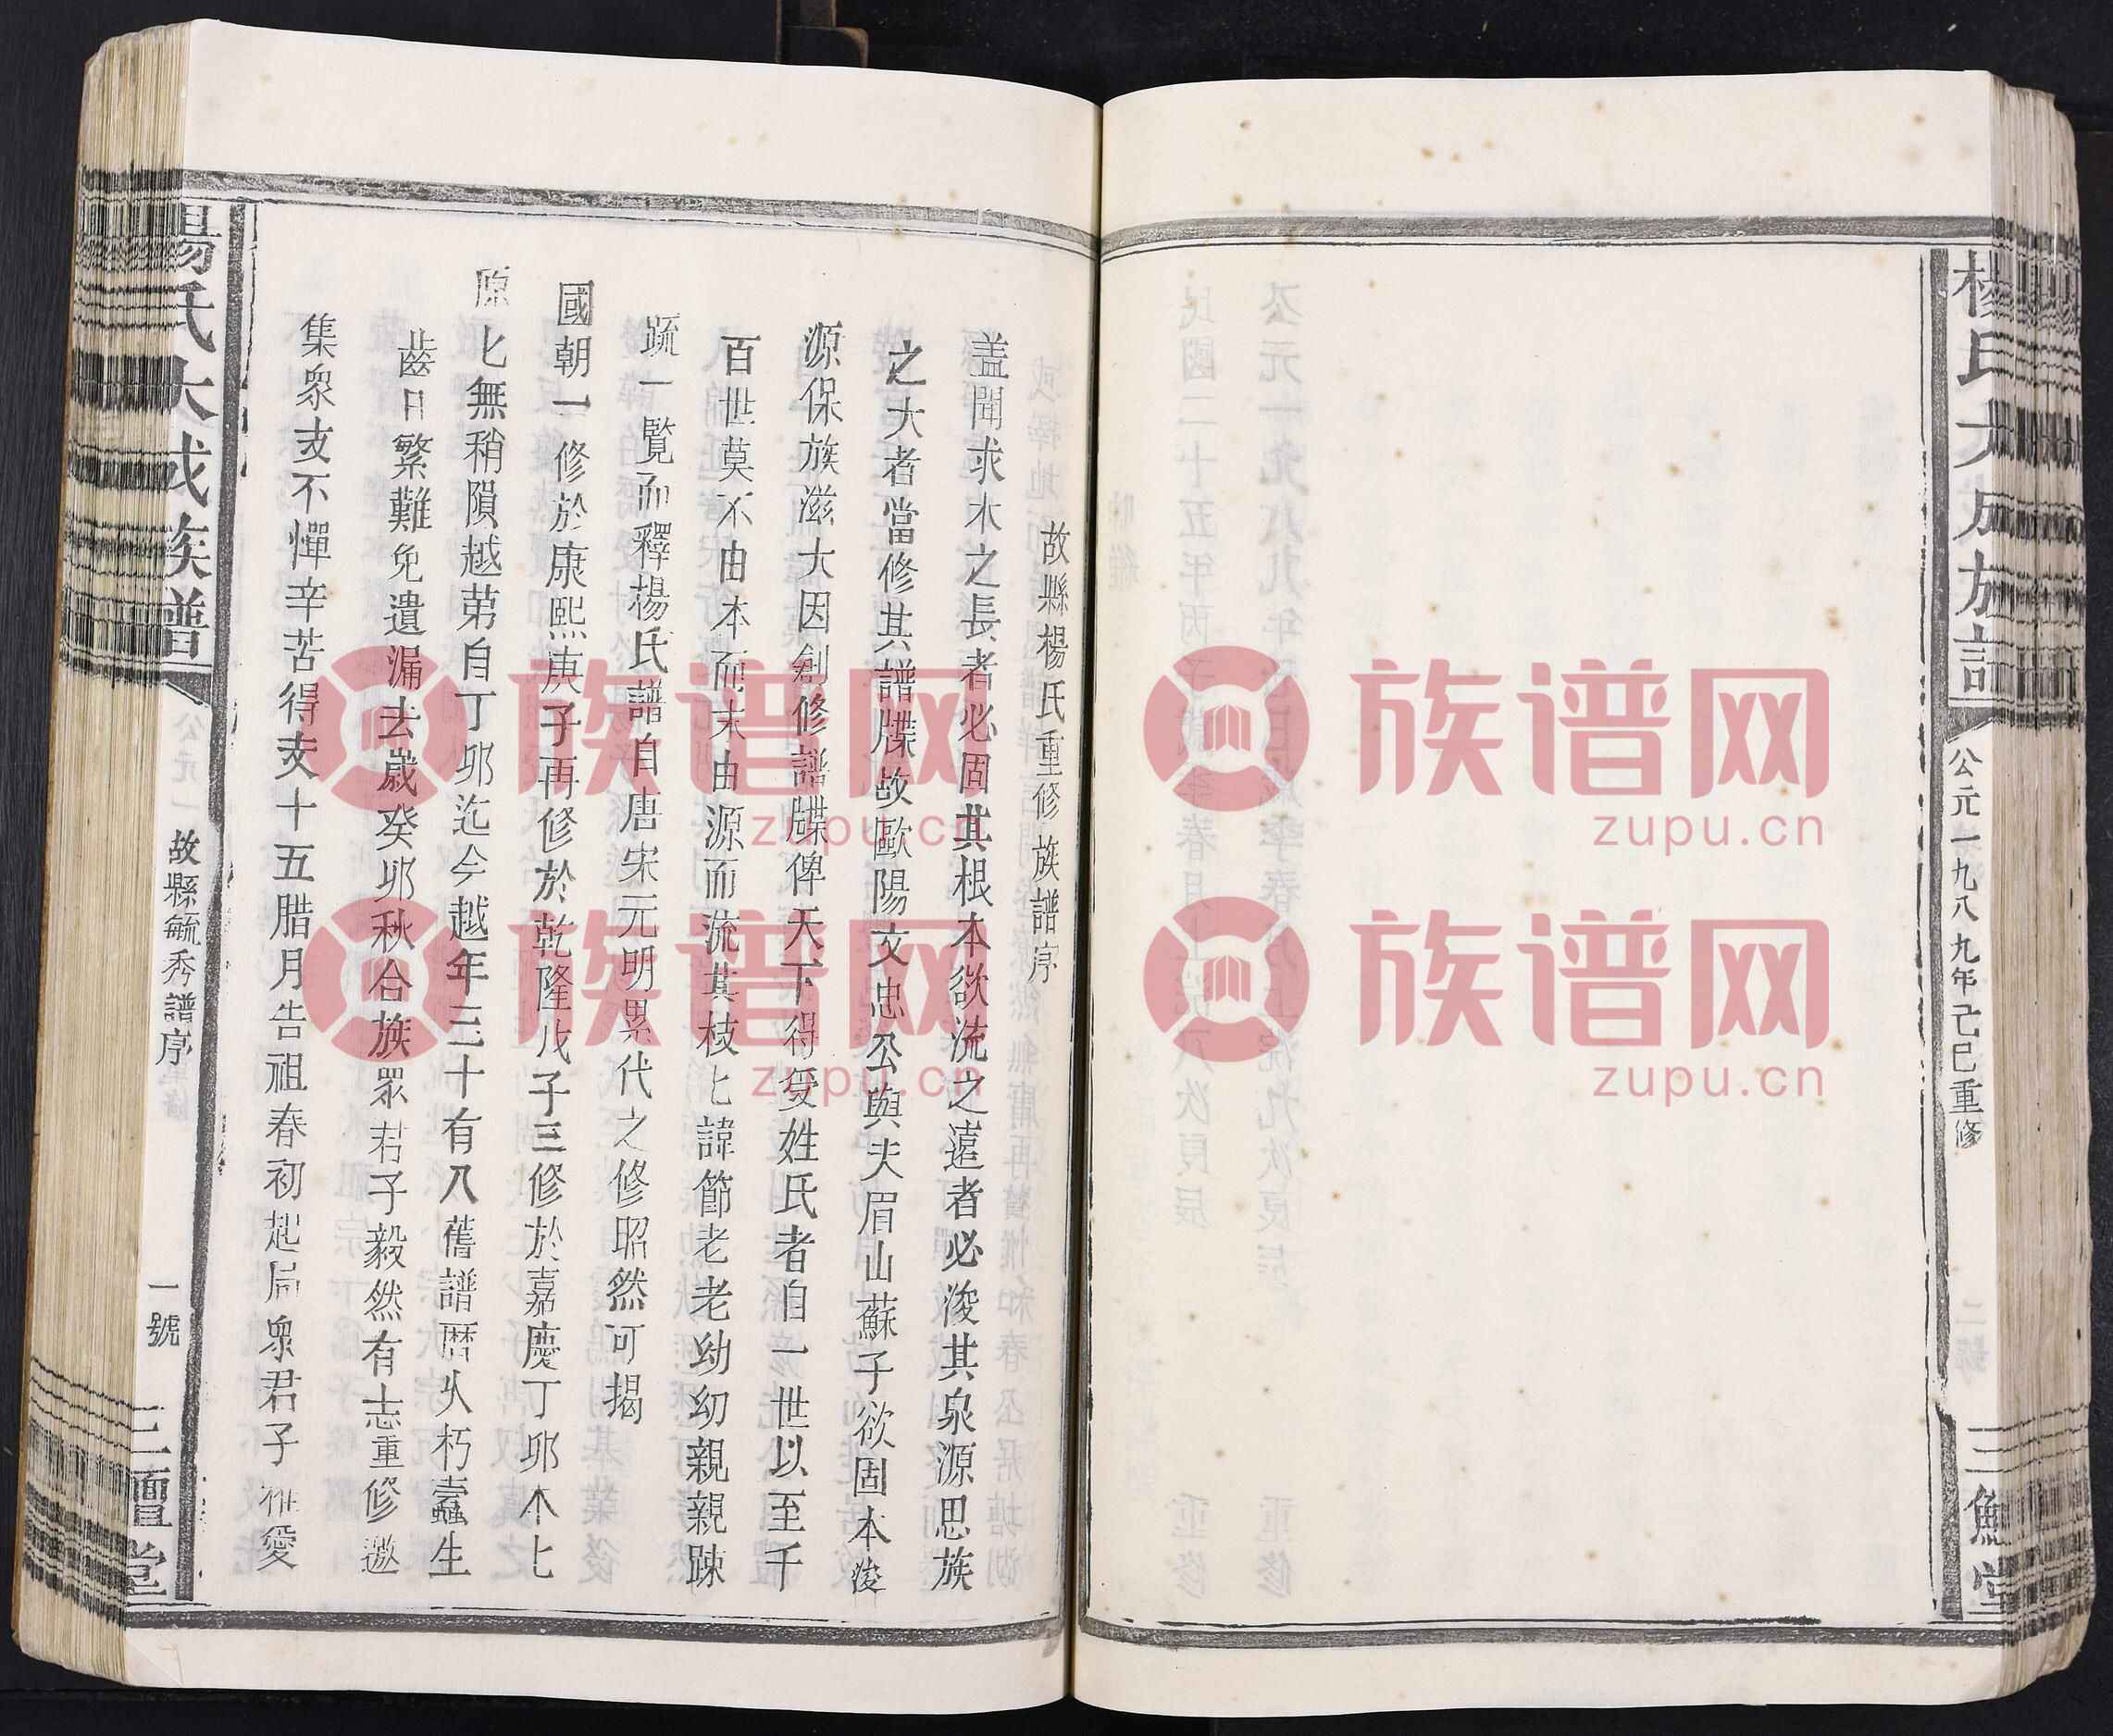 楊氏大成族譜
公元一九八九年己巳重修
三鱣堂
故縣楊氏重修族譜序
盖聞求木之長者必固其根本欲流之遠者必浚其泉源思族
之大者當修其譜牒故歐陽文忠公與夫眉山蘇子欲固本浚
源保族滋大因創修譜牒俾天下得受姓氏者自一世以至千
百世莫不由本而末由源而流其枝匕諱節老老幼幼親親踈
䟽一覽而釋楊氏譜自唐宋元明累代之修昭然可揭
國朝一修於康熙庚子再修於乾隆戊子三修於嘉慶丁邜木匕
原匕無稍隕越苐自丁邜迄今越年三十有八舊譜曆久朽蠹生
齒日繁難免遺漏去歲癸邜秋合族眾君子毅然有志重修邀
集衆支不憚辛苦得支十五腊月告祖春初起局衆君子 愛
楊氏大成族譜
故縣毓秀譜序
一號
三鱣堂
族谱网
zupu.cn
族谱网
zupu.cn
族谱网
zupu.cn
族谱网
zupu.cn